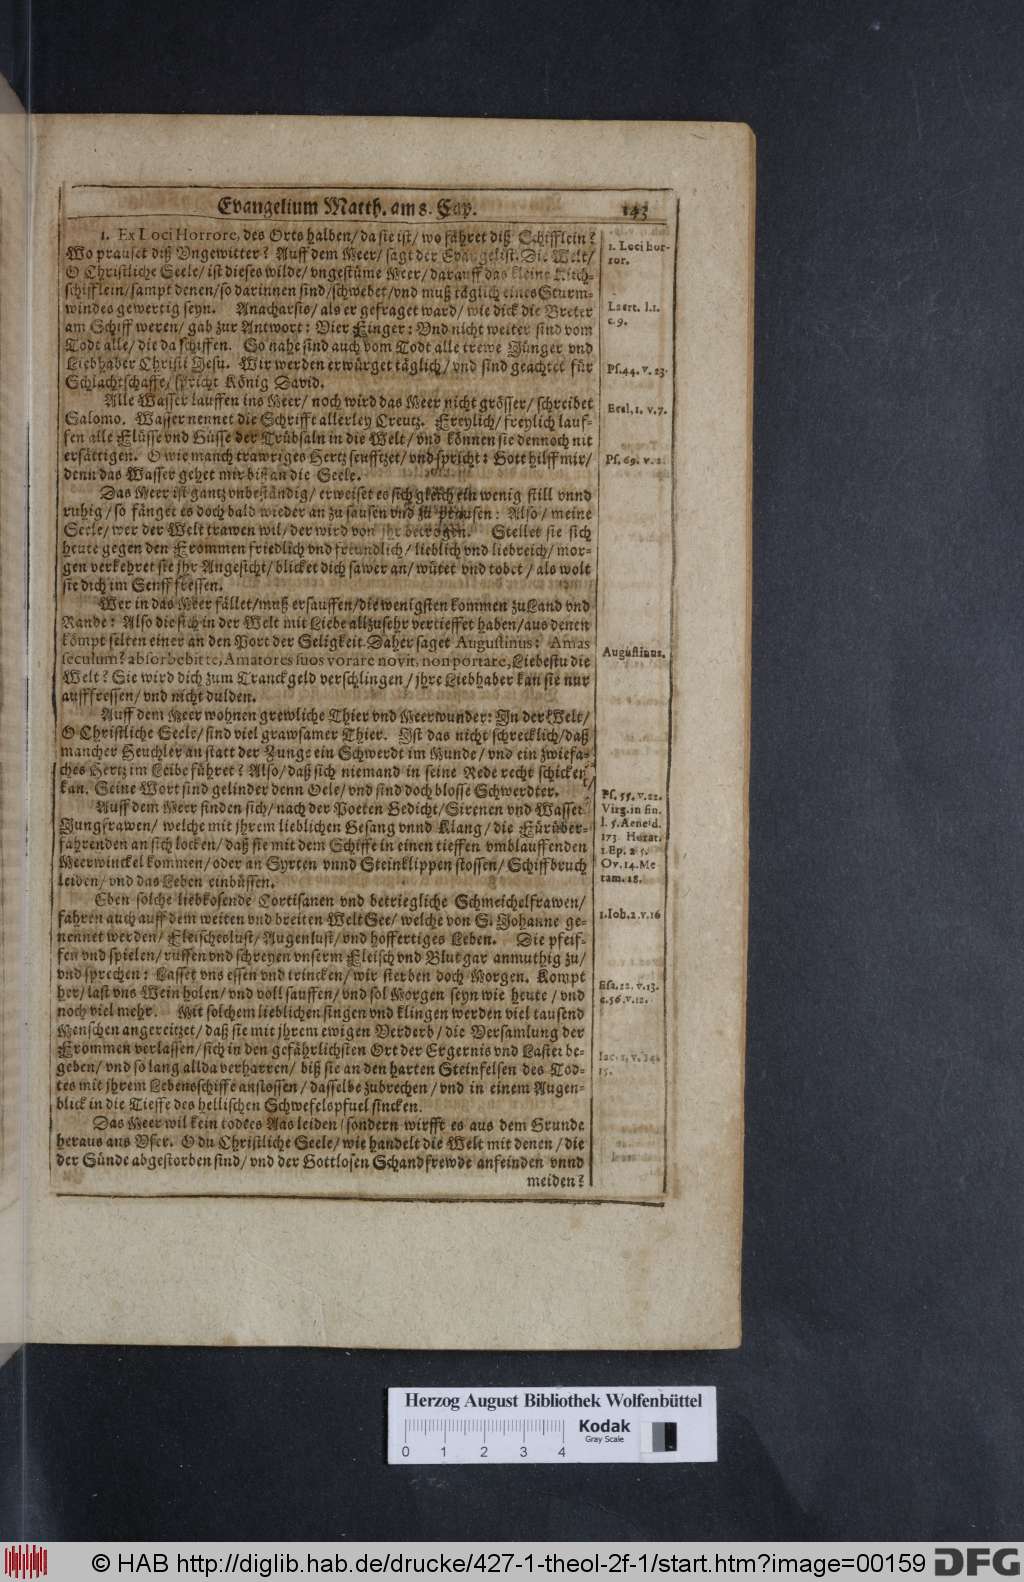 Evangelium Matth. am 8. Cap. 143
1. Ex Loci Horrore, des Orts halben/ da sie ist/ wo fähret diß Schifflein?
Wo prauset diß Vngewitter? Auff dem Meer/ sagt der Evangelist. Die Welt/
O Christliche Seele/ ist dieses wilde/ vngestüme Meer/ darauff das kleine Kirch-
schifflein/ sampt denen/ so darinnen sind/ schwebet/ vnd muß täglich eines Sturm-
windes gewertig seyn. Anacharsis/ als er gefraget ward/ wie dick die Breter
am Schiff weren/ gab zur Antwort: Vier Finger: Vnd nicht weiter sind vom
Todt alle/ die da schiffen. So nahe sind auch vom Todt alle trewe Jünger vnd
Liebhaber Christi Jesu. Wir werden erwürget täglich/ vnd sind geachtet für
Schlachtschaffe/ spricht König David.
Alle Wasser lauffen ins Meer/ noch wird das Meer nicht grösser/ schreibet
Salomo. Wasser nennet die Schrifft allerley Creutz. Freylich/ freylich lauf-
fen alle Flüsse vnd Güsse der Trübsaln in die Welt/ vnd können sie dennoch nit
ersättigen. O wie manch trawriges Hertz seufftzet/ vnd spricht: Gott hilff mir/
denn das Wasser gehet mir biß an die Seele.
Das Meer ist gantz vnbeständig/ erweiset es sich gleich ein wenig still vnnd
ruhig/ so fänget es doch bald wieder an zu sausen vnd zu prausen: Also/ meine
Seele/ wer der Welt trawen wil/ der wird von jhr betrogen. Stellet sie sich
heute gegen den Frommen friedlich vnd freundlich/ lieblich vnd liebreich/ mor-
gen verkehret sie jhr Angesicht/ blicket dich sawer an/ wütet vnd tobet/ als wolt
sie dich im Senff fressen.
Wer in das Meer fället/ muß ersauffen/ die wenigsten kommen zu Land vnd
Rande: Also die sich in der Welt mit Liebe allzusehr vertieffet haben/ aus denen
kömpt selten einer an den Port der Seligkeit. Daher saget Augustinus: Amas
seculum? absorbebit te, Amatores suos vorare novit, non portare, Liebestu die
Welt? Sie wird dich zum Tranckgeld verschlingen/ jhre Liebhaber kan sie nur
aufffressen/ vnd nicht dulden.
Auff dem Meer wohnen grewliche Thier vnd Meerwunder: In der Welt/
O Christliche Seele/ sind viel grawsamer Thier. Ist das nicht schrecklich/ daß
mancher Heuchler an statt der Zunge ein Schwerdt im Munde/ vnd ein zwiefa-
ches Hertz im Leibe führet? Also/ daß sich niemand in seine Rede recht schicken
kan. Seine Wort sind gelinder denn Oele/ vnd sind doch blosse Schwerdter.
Auff dem Meer finden sich/ nach der Poeten Gedicht/ Sirenen vnd Wasser
Jungfrawen/ welche mit jhrem lieblichen Gesang vnnd Klang/ die Fürüber-
fahrenden an sich locken/ daß sie mit dem Schiffe in einen tieffen vmblauffenden
Meerwinckel kommen/ oder an Syrten vnnd Steinklippen stossen/ Schiffbruch
leiden/ vnd das Leben einbüssen.
Eben solche liebkosende Cortisanen vnd betriegliche Schmeichelfrawen/
fahren auch auff dem weiten vnd breiten Welt See/ welche von S. Johanne ge-
nennet werden/ Fleischeslust/ Augenlust/ vnd hoffertiges Leben. Die pfeif-
fen vnd spielen/ ruffen vnd schreyen vnserm Fleisch vnd Blut gar anmuthig zu/
vnd sprechen: Lasset vns essen vnd trincken/ wir sterben doch Morgen. Kompt
her/ last vns Wein holen/ vnd voll sauffen/ vnd sol Morgen seyn wie heute/ vnd
noch viel mehr. Mit solchem lieblichen singen vnd klingen werden viel tausend
Menschen angereitzet/ daß sie mit jhrem ewigen Verderb/ die Versamlung der
Frommen verlassen/ sich in den gefährlichsten Ort der Ergernis vnd Laster be-
geben/ vnd so lang allda verharren/ biß sie an den harten Steinfelsen des Tod-
tes mit jhrem Lebensschiffe anstossen/ dasselbe zubrechen/ vnd in einem Augen-
blick in die Tieffe des hellischen Schwefelspfuel sincken.
Das Meer wil kein todtes Aas leiden/ sondern wirfft es aus dem Grunde
heraus ans Vfer. O du Christliche Seele/ wie handelt die Welt mit denen/ die
der Sünde abgestorben sind/ vnd der Gottlosen Schandfrewde anfeinden vnnd
meiden?
1. Loci hor-
ror.
Laert. l.1.
c.9.
Ps.44. v. 23.
Eccl. 1. v. 7.
Ps. 69. v. 2.
Augustinus.
Ps. 55. v. 22.
Virg. in fin.
l. 5. Aeneid.
173 Horat.
1 Ep. 2 5.
Ov. 14. Me
tam. 18.
1. Joh. 2. v. 16
Esa. 22. v. 13.
c. 56. v. 12.
Jac. 1. v. 14.
15.
Herzog August Bibliothek Wolfenbüttel
0 1 2 3 4
Kodak
Gray Scale
© HAB http://diglib.hab.de/drucke/427-1-theol-2f-1/start.htm?image=00159
DFG